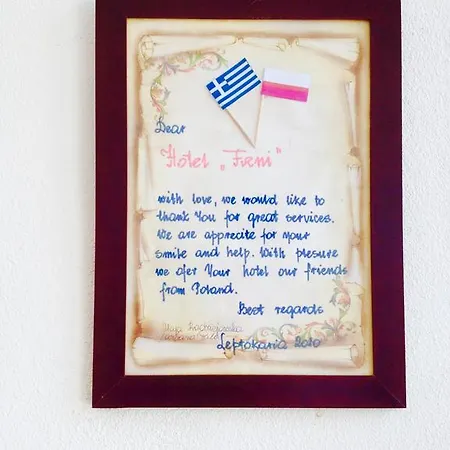 Dear
Hotel „Freni"
with love, we would like to
thank You for great services.
We are apprecite for your
smile and help. With plesure
we ofer Your hotel our friends
from Poland.
Best regards
Leptokaria 2010